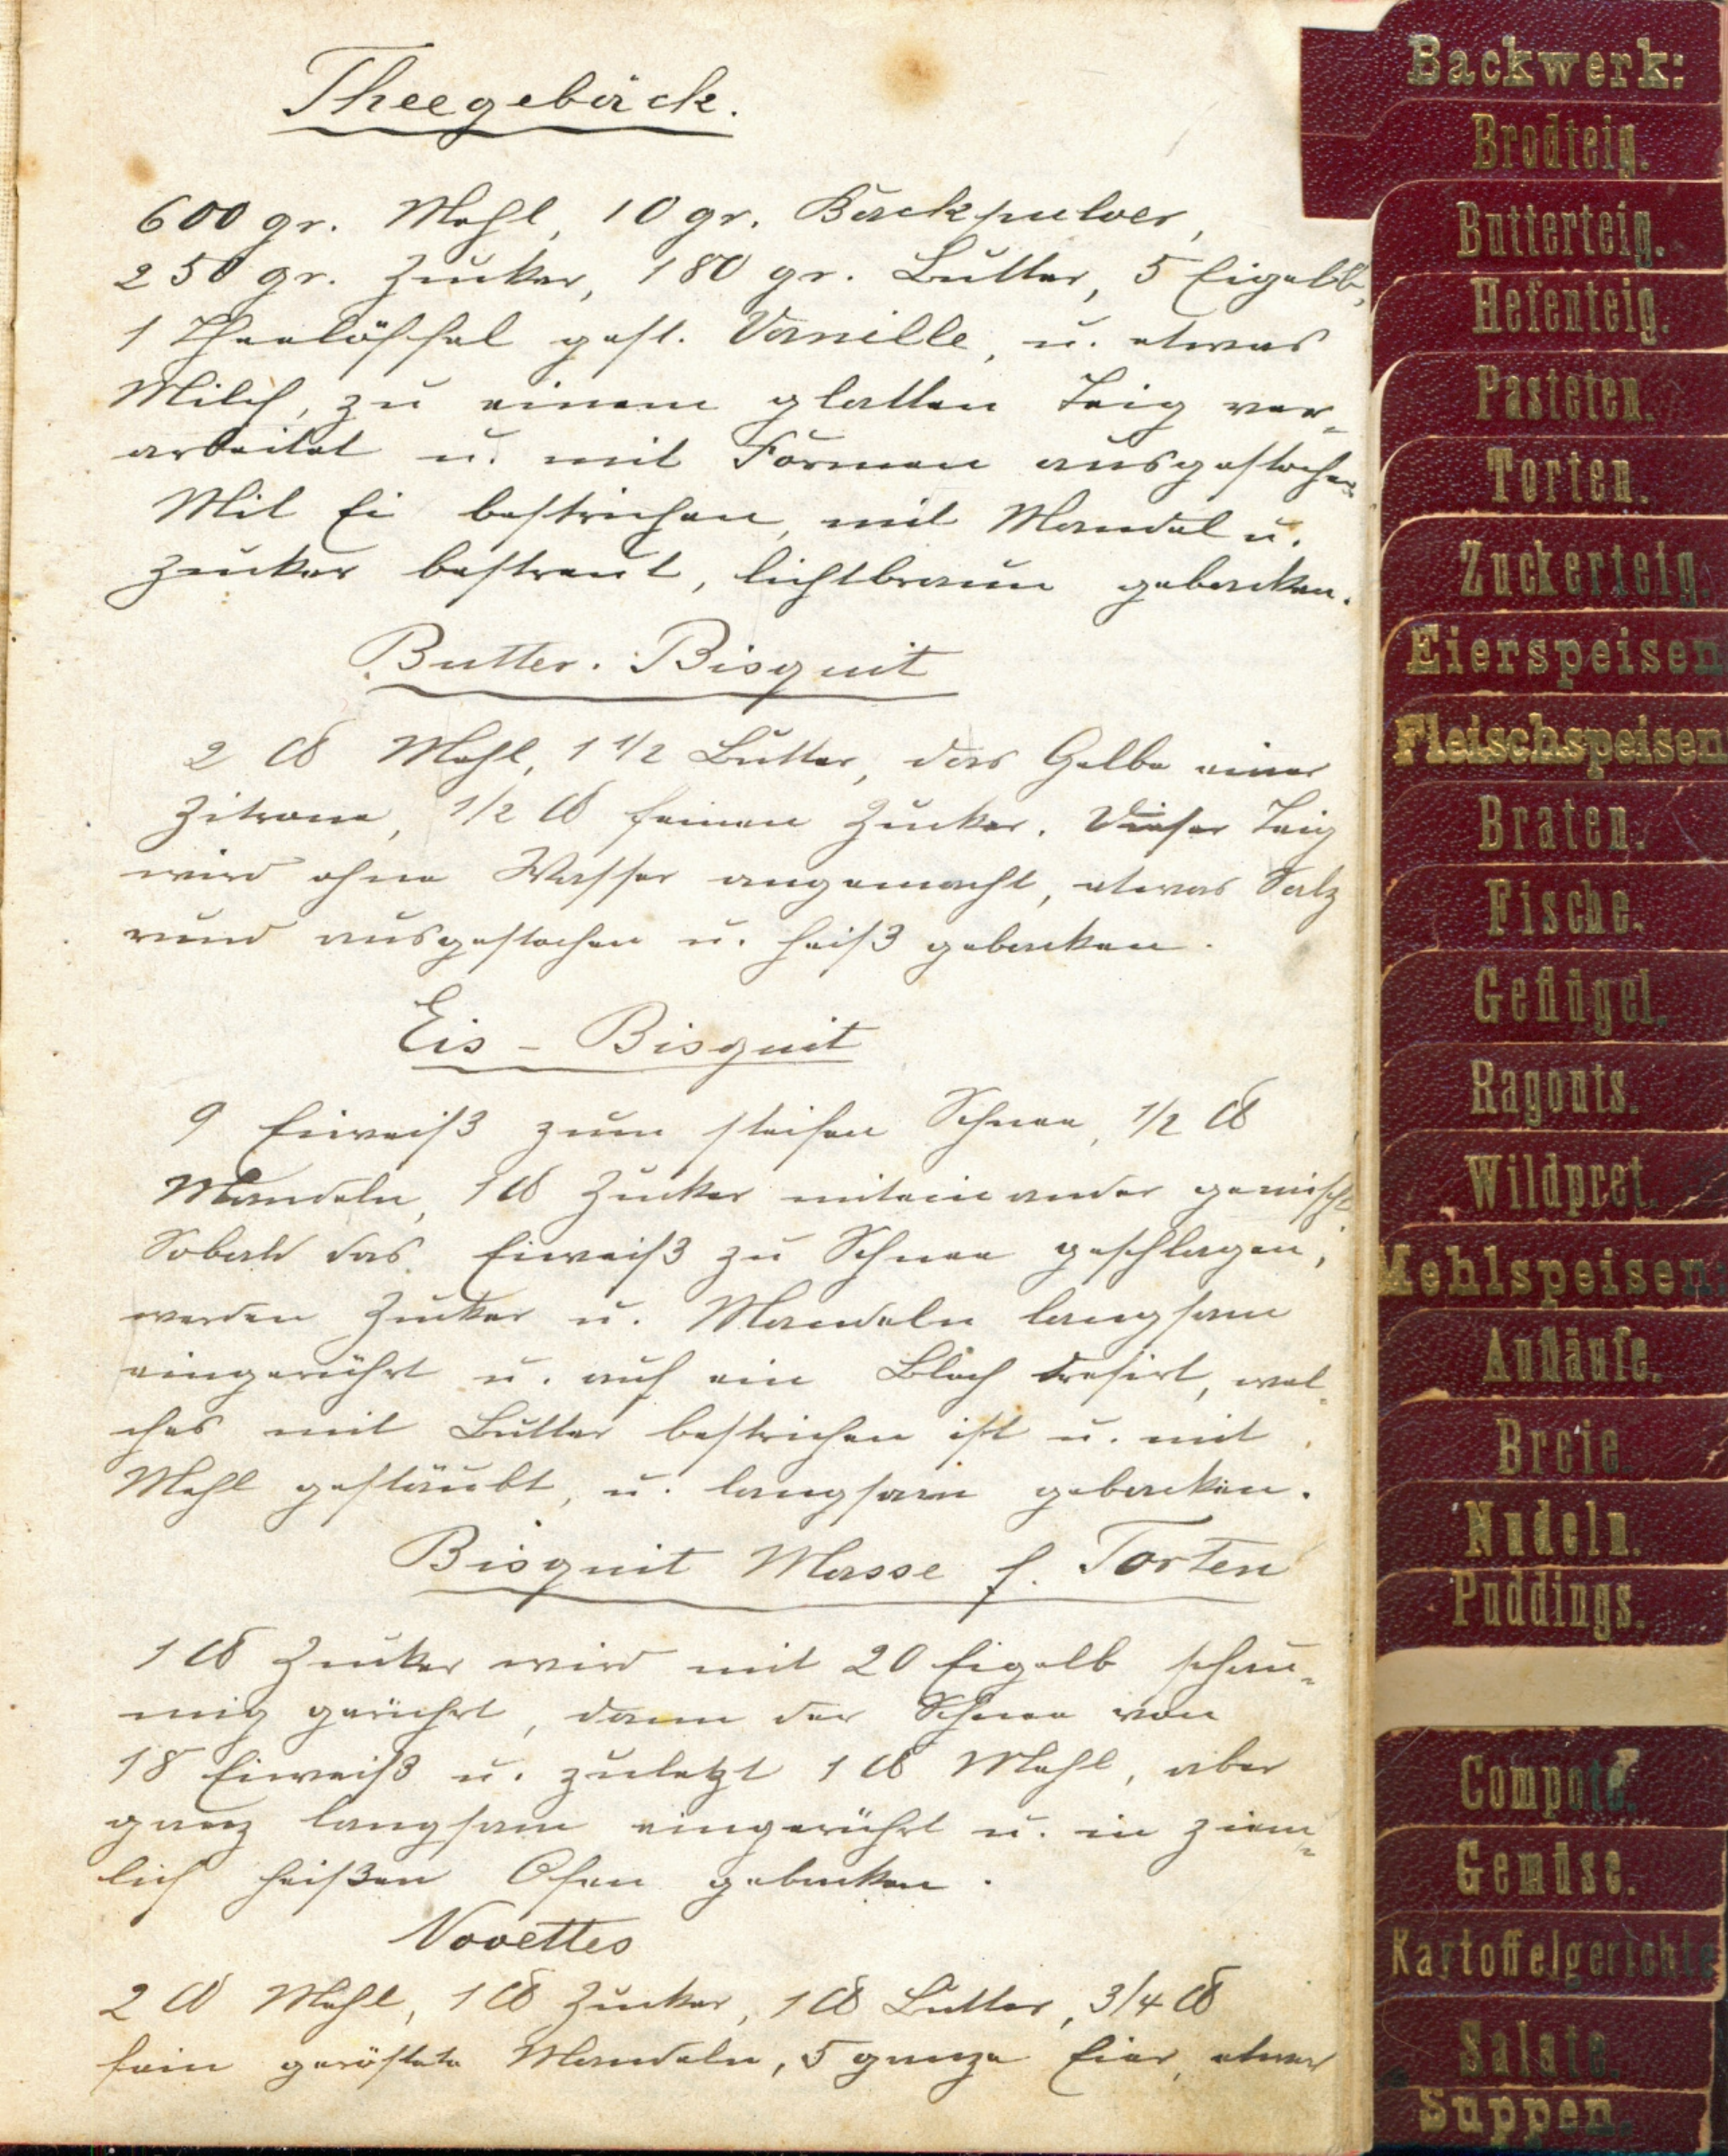 Theegebäck.
600 gr. Mehl, 10 gr. Backpulver,
250 gr. Zucker, 180 gr. Butter, 5 Eigelb,
1 Theelöffel gest. Vanille, u. etwas
Milch, zu einem glatten Teig ver-
arbeitet u. mit Formen ausgestochen
Mit Ei bestrichen, mit Mandel u.
Zucker bestreut, lichtbraun gebacken.
Butter. Bisquit
2 ℔ Mehl, 1 1/2 Butter, das Gelbe einer
Zitrone, 1/2 ℔ feinen Zucker. Dieser Teig
wird ohne Wasser angemacht, etwas Salz
rund ausgestochen u. heiß gebacken.
Eis - Bisquit
9 Eiweiß zum steifen Schnee, 1/2 ℔
Mandeln, 1 ℔ Zucker miteinander gemischt.
Sobald das Eiweiß zu Schnee geschlagen,
werden Zucker u. Mandeln langsam
eingerührt u. auf ein Blech dresirt, wel-
ches mit Butter bestrichen ist u. mit
Mehl gestäubt, u. langsam gebacken.
Bisquit Masse f. Torten
1 ℔ Zucker wird mit 20 Eigelb schau-
mig gerührt, dann der Schnee von
18 Eiweiß u. zuletzt 1 ℔ Mehl, aber
ganz langsam eingerührt u. in ziem-
lich heißen Ofen gebacken.
Novettes
2 ℔ Mehl, 1 ℔ Zucker, 1 ℔ Butter, 3/4 ℔
fein geröstete Mandeln, 5 ganze Eier, etwas
Backwerk:
Brodteig.
Butterteig.
Hefenteig.
Pasteten.
Torten.
Zuckerteig.
Eierspeisen
Fleischspeisen
Braten.
Fische.
Geflügel.
Ragouts.
Wildpret.
Mehlspeisen:
Aufläufe.
Breie.
Nudeln.
Puddings.
Compote.
Gemüse.
Kartoffelgerichte
Salate.
Suppen.